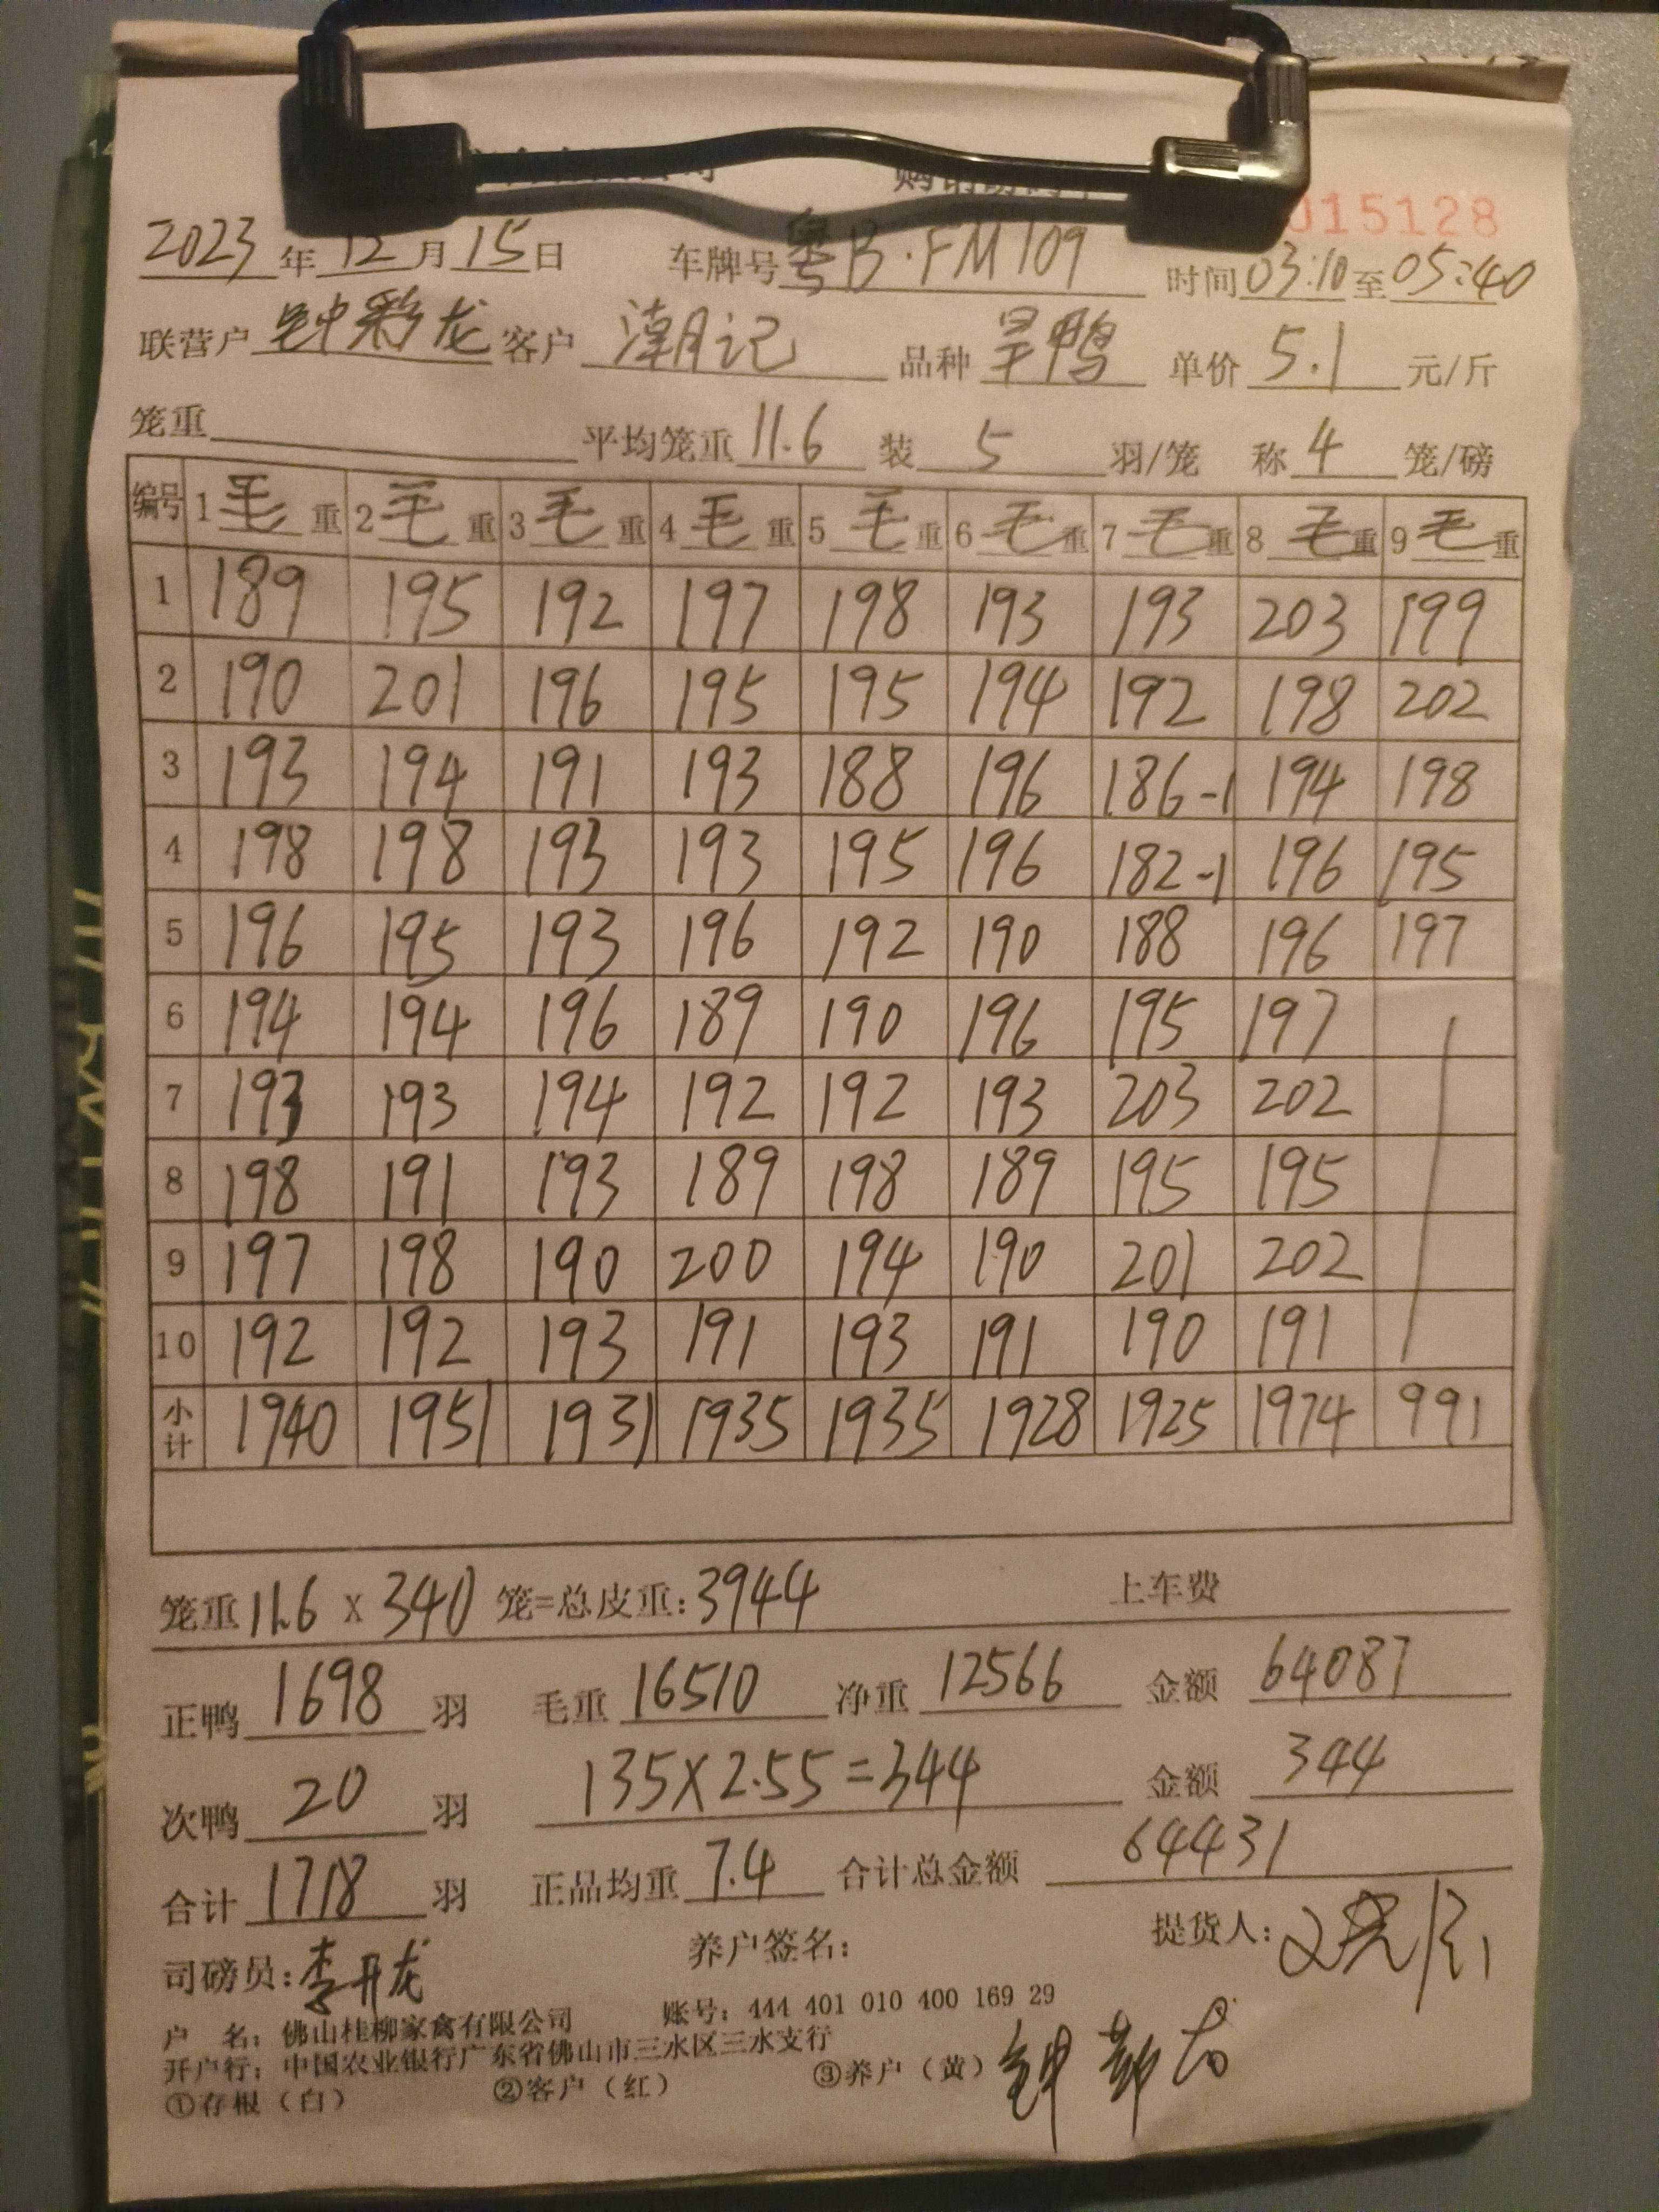 015128
2023年12月15日 车牌号粤B·FM109 时间03:10至05:40
联营户 钟彩龙 客户 潮记 品种 旱鸭 单价 5.1 元/斤
笼重 平均笼重 11.6 装 5 羽/笼 称 4 笼/磅
编号 1毛重 2毛重 3毛重 4毛重 5毛重 6毛重 7毛重 8毛重 9毛重
1 189 195 192 197 198 193 193 203 199
2 190 201 196 195 195 194 192 198 202
3 193 194 191 193 188 196 186-1 194 198
4 198 198 193 193 195 196 182-1 196 195
5 196 195 193 196 192 190 188 196 197
6 194 194 196 189 190 196 195 197
7 193 193 194 192 192 193 203 202
8 198 191 193 189 198 189 195 195
9 197 198 190 200 194 190 201 202
10 192 192 193 191 193 191 190 191
小计 1940 1951 1931 1935 1935 1928 1925 1974 991
笼重 11.6 x 340 笼=总皮重:3944 上车费
正鸭 1698 羽 毛重 16510 净重 12566 金额 64087
次鸭 20 羽 135X2.55=344 金额 344
合计 1718 羽 正品均重 7.4 合计总金额 64431
司磅员:李开龙 养户签名: 提货人:
户 名: 佛山桂柳家禽有限公司 账号: 444 401 010 400 169 29
开户行: 中国农业银行广东省佛山市三水区三水支行
①存根(白) ②客户(红) ③养户(黄)